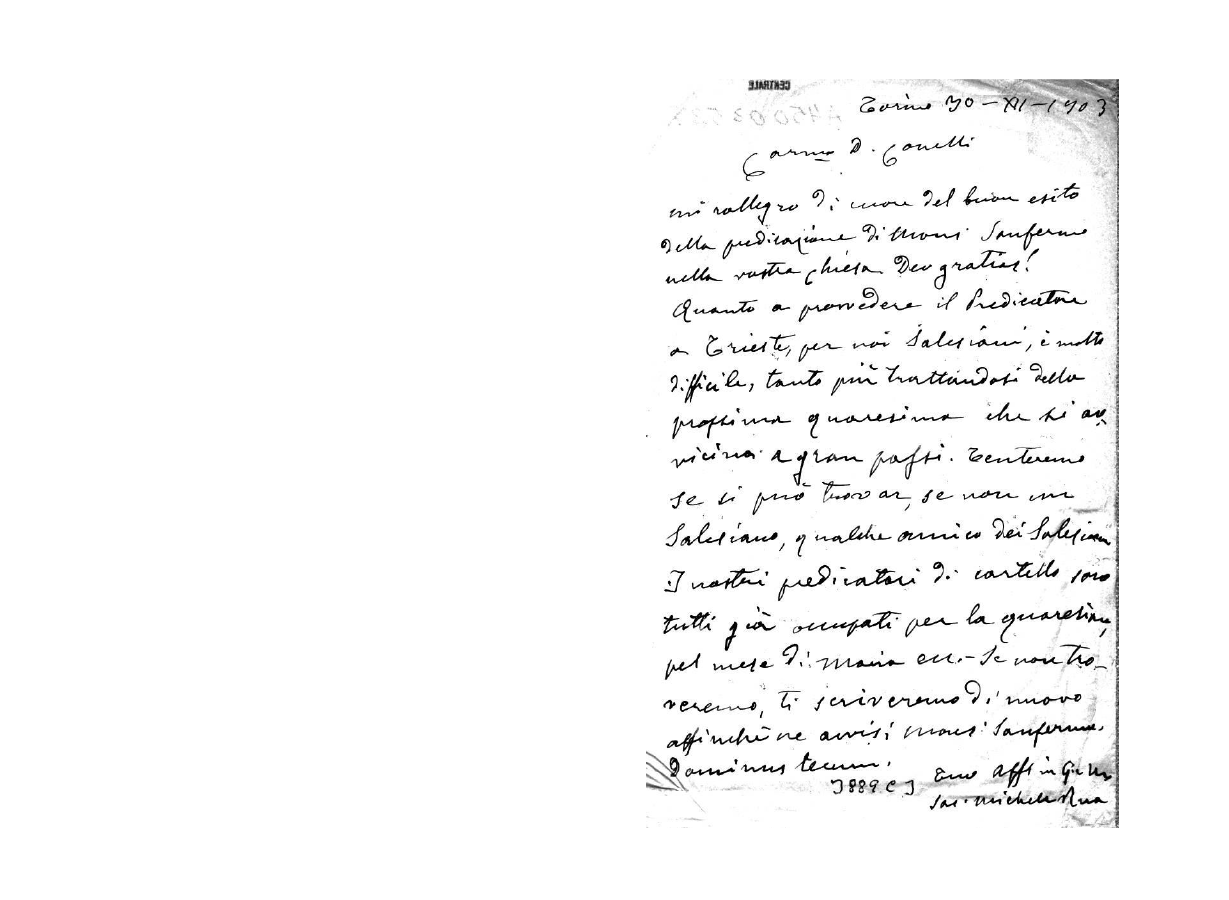 CENTRALE
A4500353
Torino 30-XI-1903
Carmo D. Conelli
mi rallegro di cuore del buon esito
della predicazione di Mons. Sanfermo
nella vostra chiesa. Deo gratias!
Quanto a provvedere il Predicatore
a Trieste, per noi Salesiani, è molto
difficile, tanto più trattandosi della
prossima quaresima che si av
vicina a gran passi. Tenteremo
se si può trovar, se non un
Salesiano, qualche amico dei Salesiani
I nostri predicatori di cartello sono
tutti già occupati per la quaresima,
pel mese di Maria ecc. - Se non tro-
veremo, ti scriveremo di nuovo
affinchè ne avvisi Mons. Sanfermo.
Dominus tecum.
Tuo Aff in G. e M
[889 C]
Sac. Michele Rua